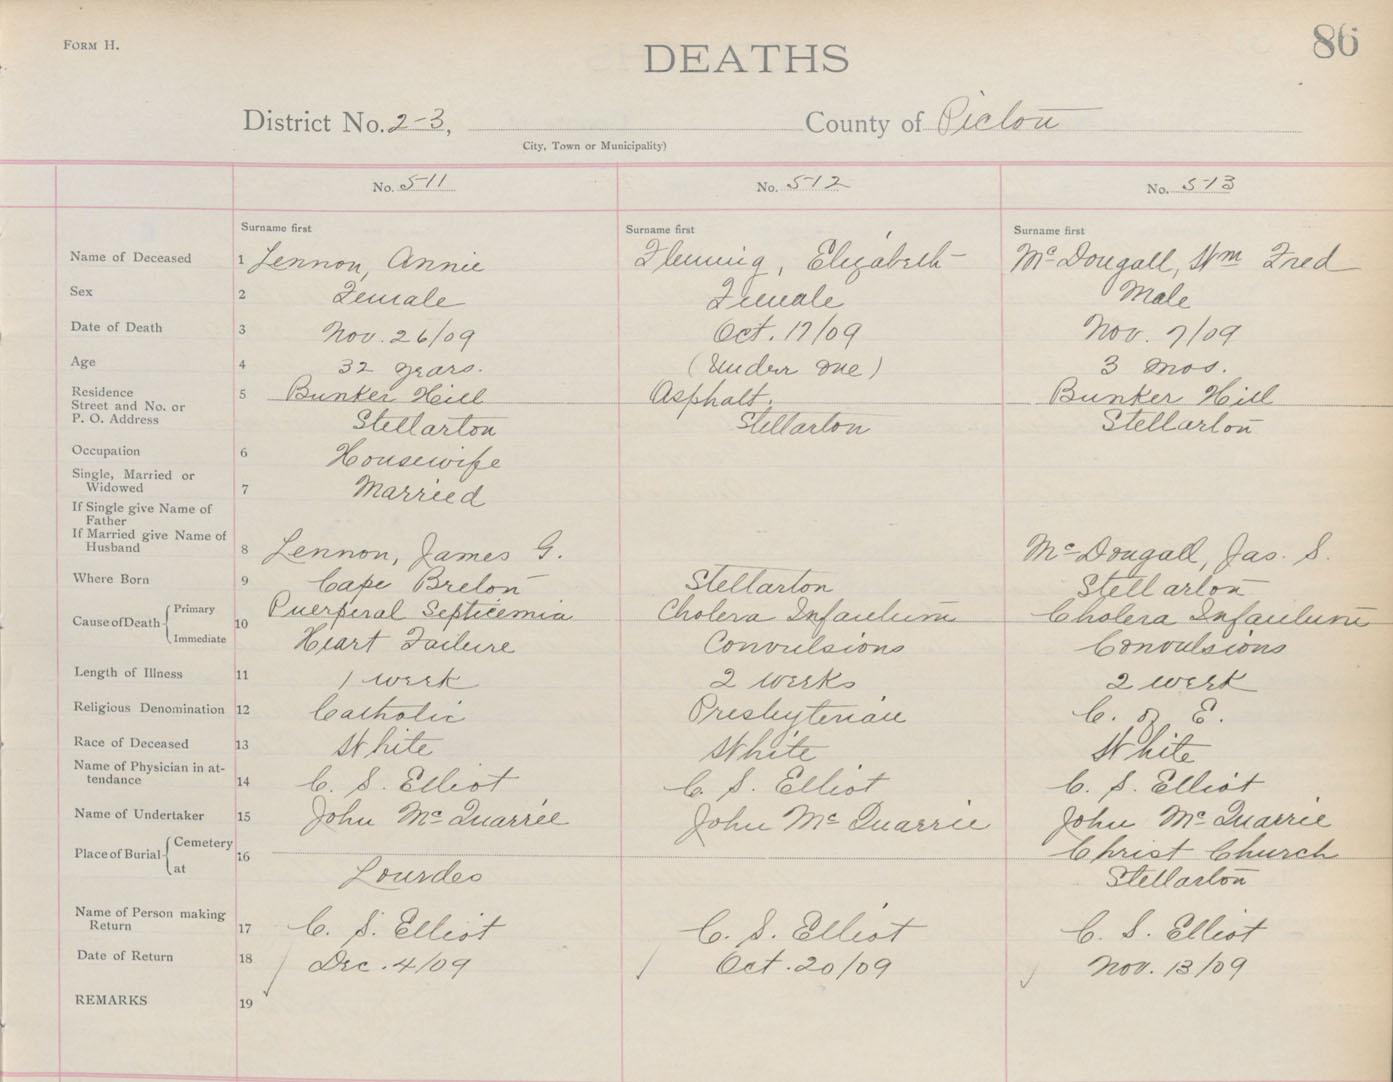 Form H.
86
DEATHS
District No. 2-3, County of Pictou
City, Town or Municipality)
No. 511 No. 512 No. 513
Surname first Surname first Surname first
Name of Deceased 1 Lennon, Annie Fleming, Elizabeth McDougall, Wm Fred
Sex 2 Female Female Male
Date of Death 3 Nov. 26/09 Oct. 17/09 Nov. 7/09
Age 4 32 years. (Under one) 3 mos.
Residence 5 Bunker Hill Asphalt. Bunker Hill
Street and No. or
P. O. Address Stellarton Stellarton Stellarton
Occupation 6 Housewife
Single, Married or
Widowed 7 Married
If Single give Name of
Father
If Married give Name of
Husband 8 Lennon, James G. McDougall, Jas. S.
Where Born 9 Cape Breton Stellarton Stellarton
Cause of Death Primary 10 Puerperal Septicemia Cholera Infantum Cholera Infantum
Immediate Heart Failure Convulsions Convulsions
Length of Illness 11 1 week 2 weeks 2 week
Religious Denomination 12 Catholic Presbyterian C. of E.
Race of Deceased 13 White White White
Name of Physician in at-
tendance 14 C. S. Elliot C. S. Elliot C. S. Elliot
Name of Undertaker 15 John McQuarrie John McQuarrie John McQuarrie
Place of Burial Cemetery 16 Christ Church
at Lourdes Stellarton
Name of Person making
Return 17 C. S. Elliot C. S. Elliot C. S. Elliot
Date of Return 18 Dec. 4/09 Oct. 20/09 Nov. 13/09
REMARKS 19